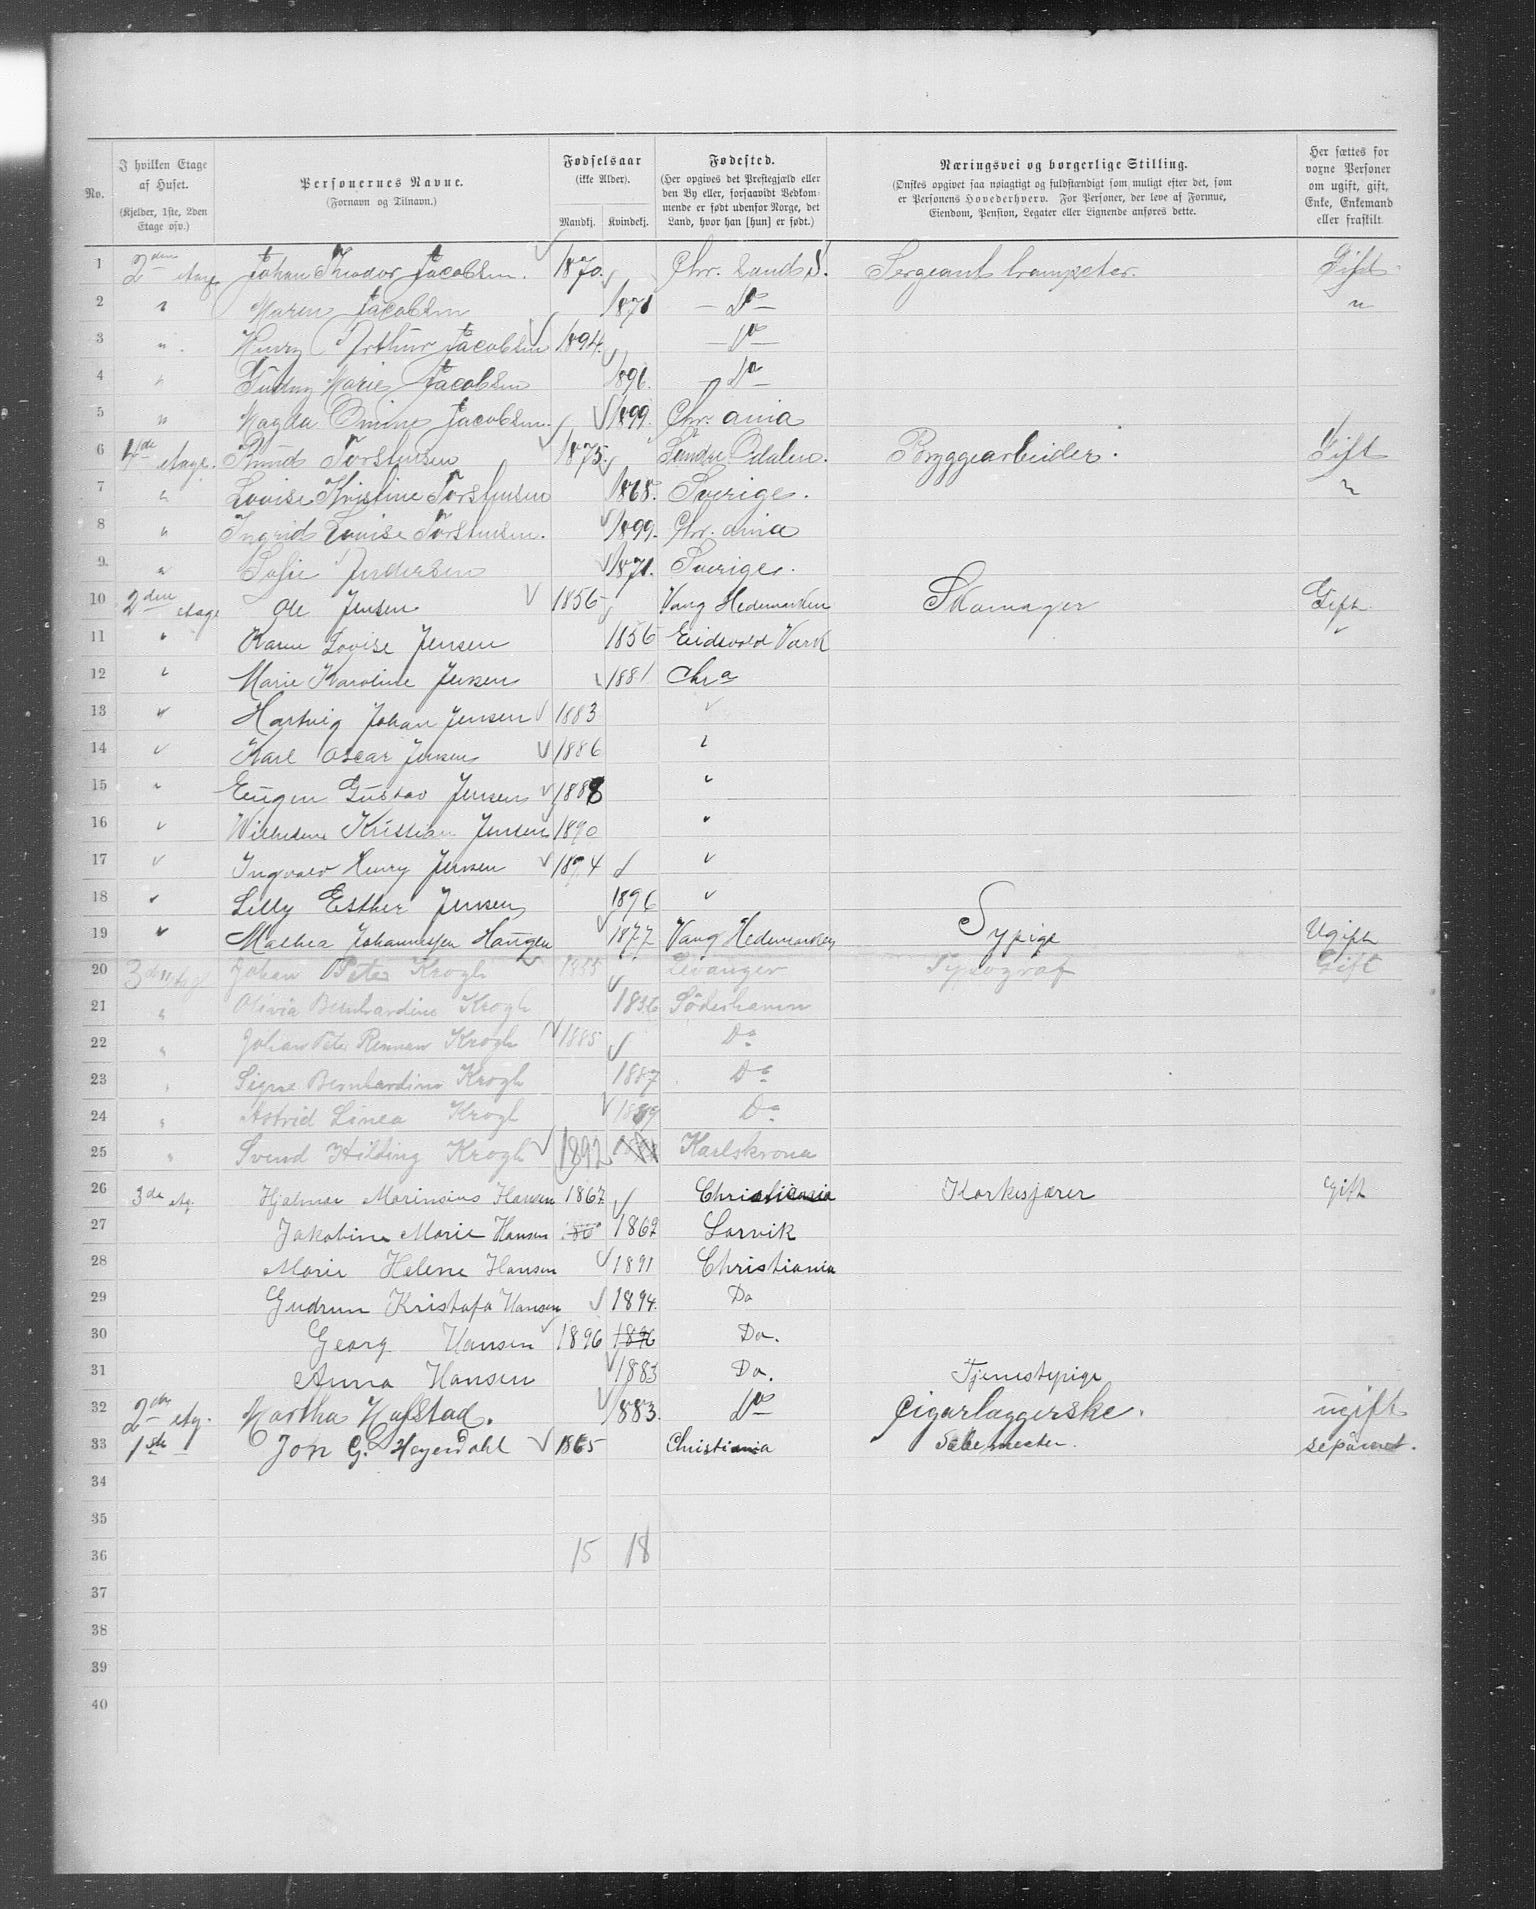 No. | I hvilken Etage af Huset. (Kjelder, 1ste, 2den Etage osv.) | Personernes Navne. (Fornavn og Tilnavn.) | Fødselsaar (ikke Alder). Mandkj. | Kvindekj. | Fødested. (Her opgives det Prestegjæld eller den By eller, forsaavidt Vedkommende er født udenfor Norge, det Land, hvor han [hun] er født.) | Næringsvei og borgerlige Stilling. (Ønskes opgivet saa nøiagtigt og fuldstændigt som muligt efter det, som er Personens Hovederhverv. For Personer, der leve af Formue, Eiendom, Pension, Legater eller Lignende anføres dette. | Her sættes for voxne Personer om ugift, gift, Enke, Enkemand eller fraskilt.
1 2den etage Johan Theodor Jacobsen. 1870. Chr. Sand S. Sergeant trompeter. Gift
2 " Maren Jacobsen 1871 — Do — "
3 " Henry Arthur Jacobsen 1894. — Do —
4 " Gudny Marie Jacobsen 1896. — Do —
5 " Magda Omine Jacobsen. 1899. Chr. ania
6 4de etage. Knud Torstensen 1875. Søndre Odalen. Bryggearbeider. Gift
7 " Lovise Kristine Torstensen 1868. Sverige. "
8 " Ingrid Lovise Torstensen. 1899. Chr. ania
9. " Sofie Andersen 1871. Sverige.
10 2den etage Ole Jensen 1856 Vang Hedemarken Skomager Gift.
11 " Karen Lovise Jensen 1856 Eidsvold Værk "
12 " Marie Karoline Jensen 1881 Chra
13 " Hartvig Johan Jensen 1883 "
14 " Karl Oscar Jensen 1886 "
15 " Eugen Gustav Jensen 1888 "
16 " Wilhelm Kristian Jensen 1890 "
17 " Ingvald Henry Jensen 1894 "
18 " Lilly Esther Jensen 1896 "
19 " Mathea Johannesen Haugen 1877 Vang Hedemarken Sypige Ugift
20 3die etg Johan Peter Krogh 1855 Levanger Typograf Gift
21 " Olivia Bernhardine Krogh 1856 Söderhamn
22 " Johan Peter Krogh 1885 Do
23 " Signe Bernhardine Krogh 1887 Do
24 " Astrid Linea Krogh 1889 Do
25 " Svend Hilding Krogh 1892 Karlskrona
26 3de etg. Hjalmar Marinsius Hansen 1867 Christiania Korkskjærer Gift
27 Jakobine Marie Hansen 1862 Larvik
28 Marie Helene Hansen 1891 Christiania
29 Gudrun Kristofa Hansen 1894. Do
30 Georg Hansen 1896 1896 Do.
31 Anna Hansen 1883 Do. Tjenestepige
32 2den etg. Martha Hafstad. 1883. Do Cigarlaggerske. ugift
33 1ste Jon G. Heyerdahl 1865 Christiania separeret.
34
35
36 15 18
37
38
39
40